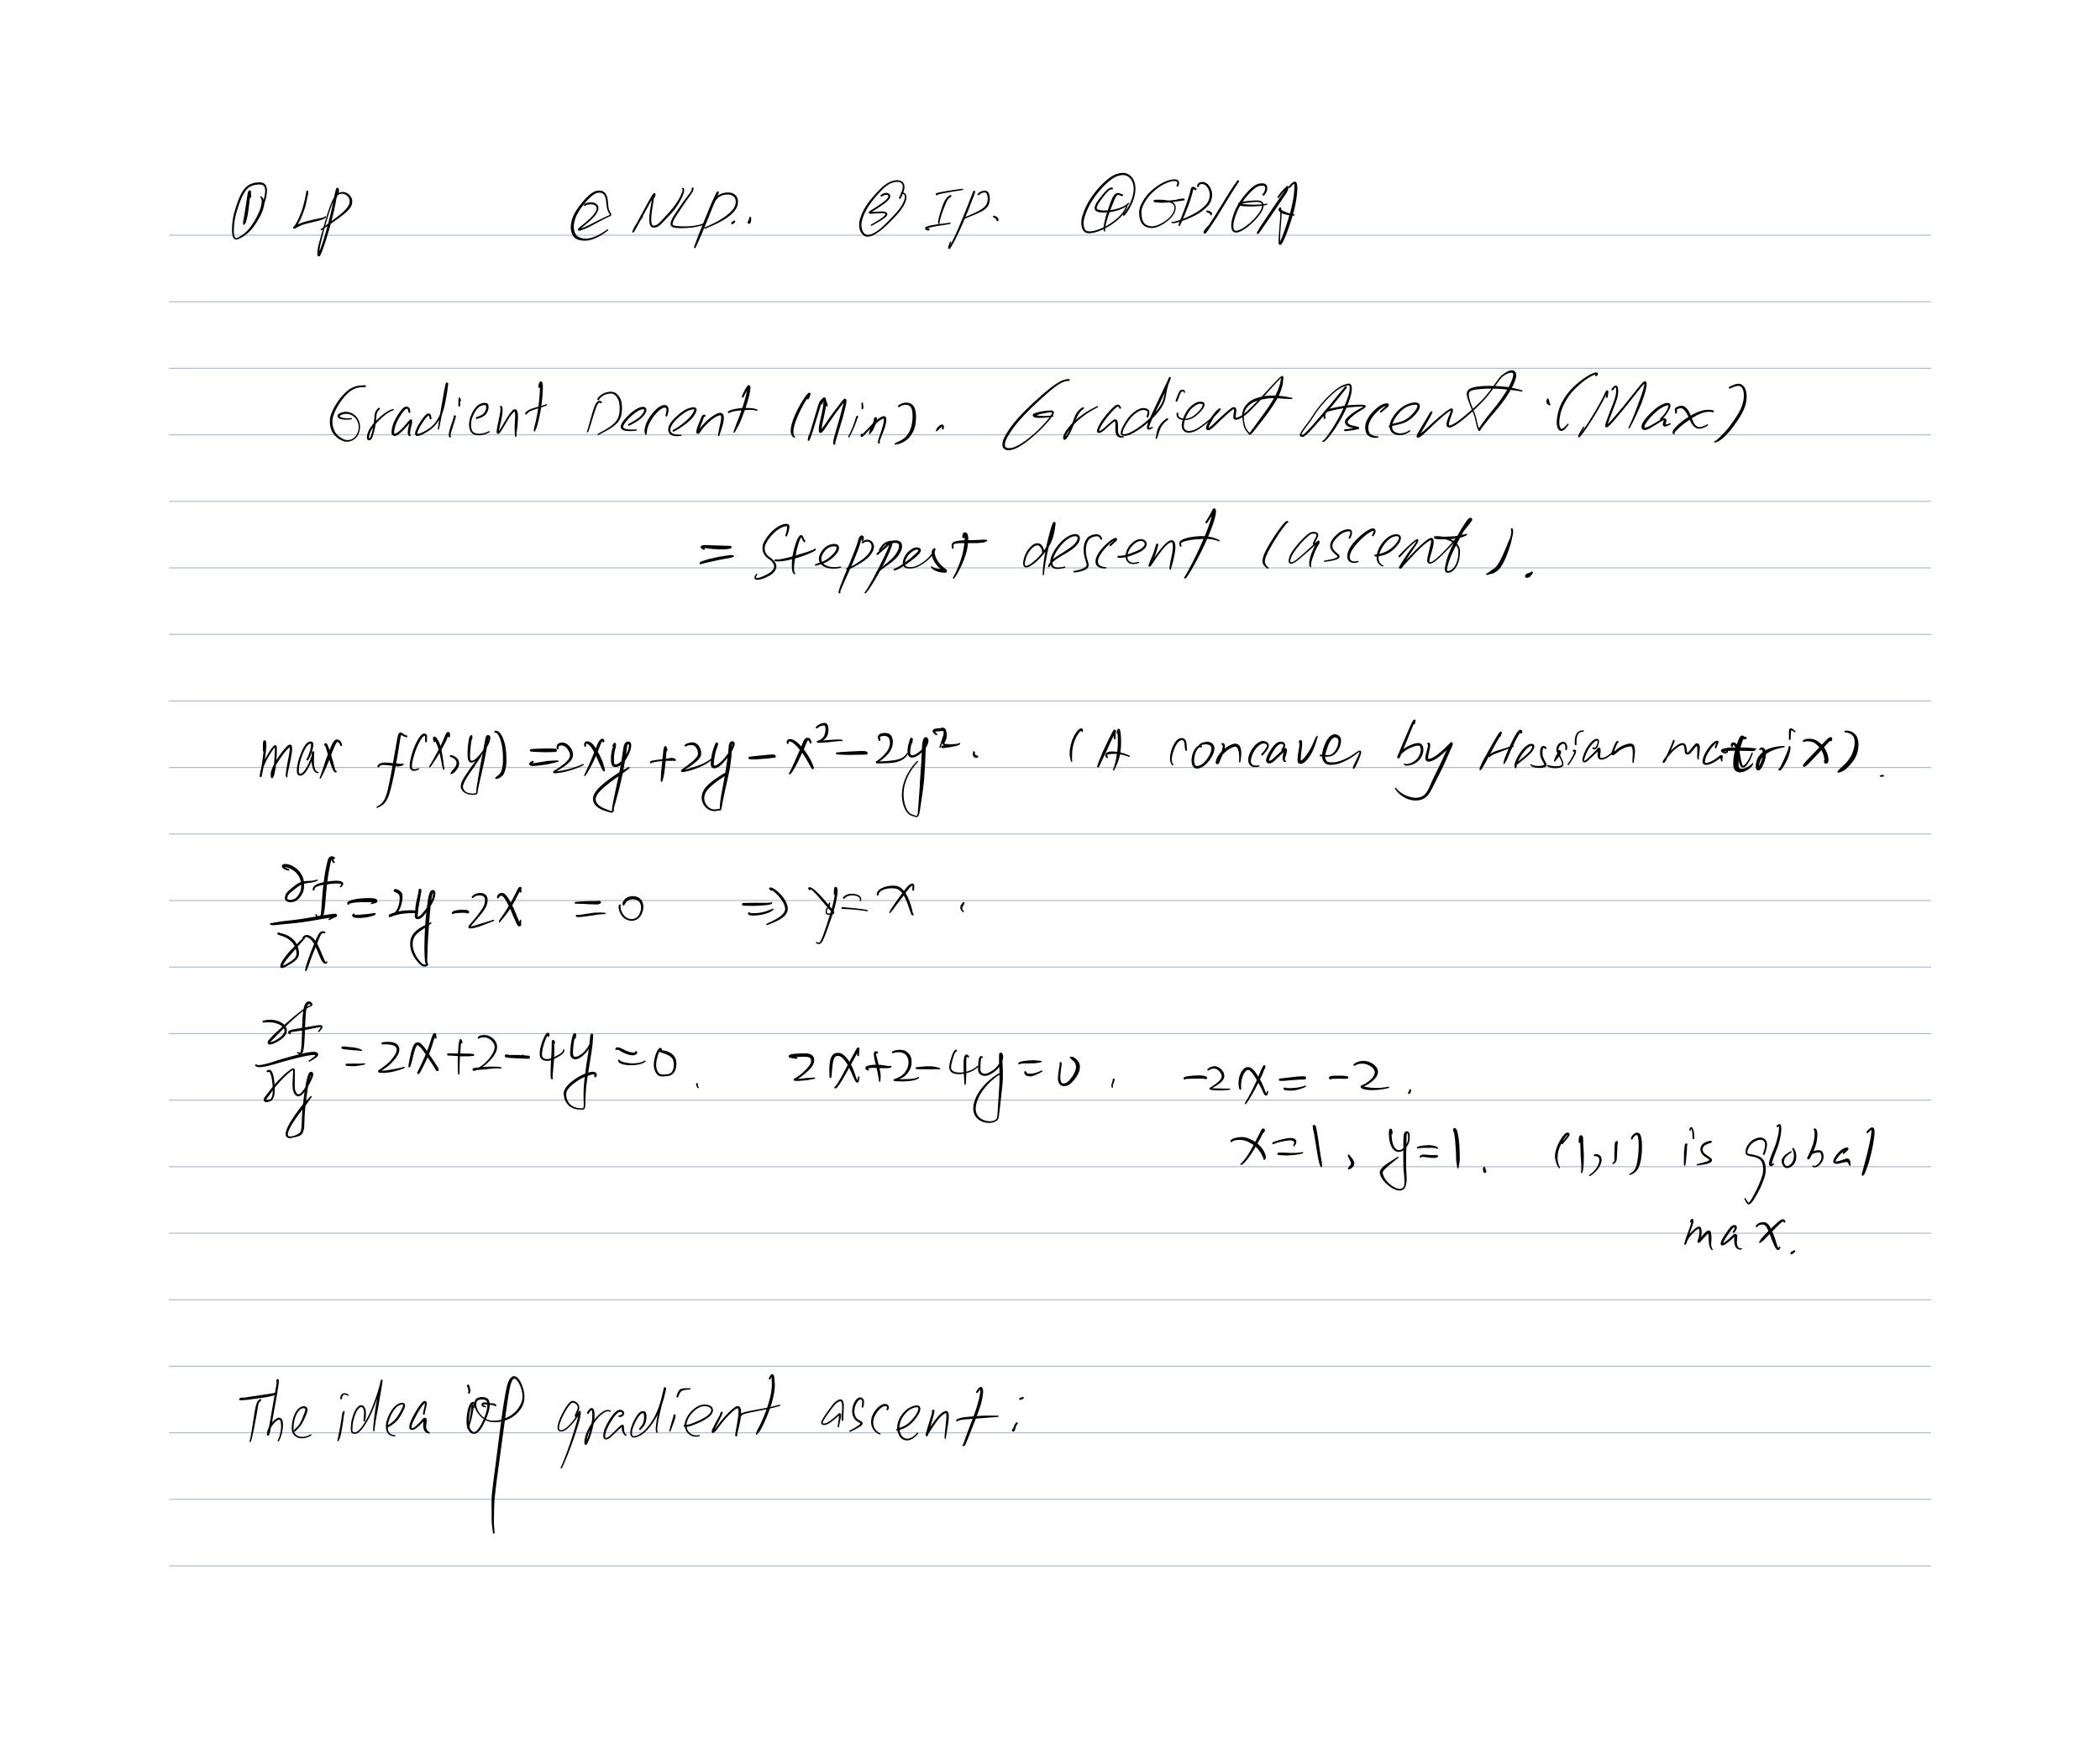 ① LP ② NLP. ③ IP. ④ GD/GA
Gradient Decent (Min). Gradient Ascent (Max)
= Steppest descent (ascent).
max f(x,y) = 2xy + 2y - x² - 2y². (A concave by Hessian matrix).
∂f/∂x = 2y - 2x = 0 ⇒ y = x.
∂f/∂y = 2x + 2 - 4y = 0. 2x + 2 - 4y = 0. -2x = -2.
x = 1, y = 1. (1,1) is global
max.
The idea of gradient ascent: